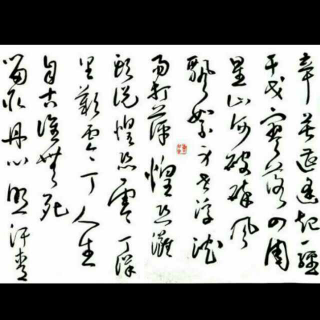 辛苦遭逢起一經
干戈寥落四周
星山河破碎风
飘絮身世浮沈
雨打萍惶恐滩
头说惶恐零丁洋
里歎零丁人生
自古谁無死
留取丹心照汗青